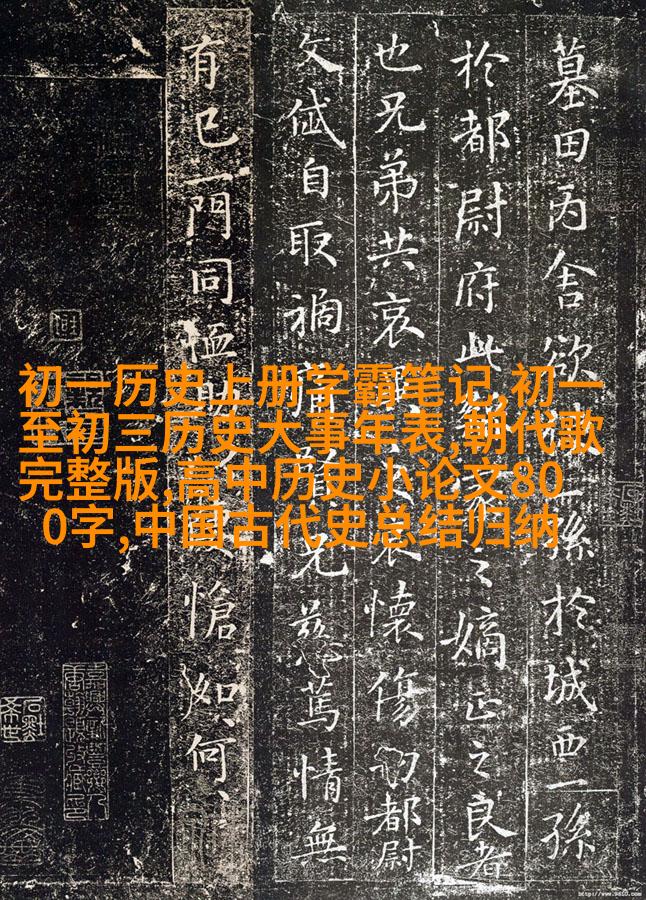 初一历史上册学霸笔记,初一
至初三历史大事年表,朝代歌
完整版,高中历史小论文80
0字,中国古代史总结归纳
墓田丙舍欲一孫於城西一孫
於都尉府此家之嫡正之良者
也兄弟共哀哀懷傷切都尉
文俶自取禍兄慈篤情無
有已一門同恤愴如何
http://www.9610.com